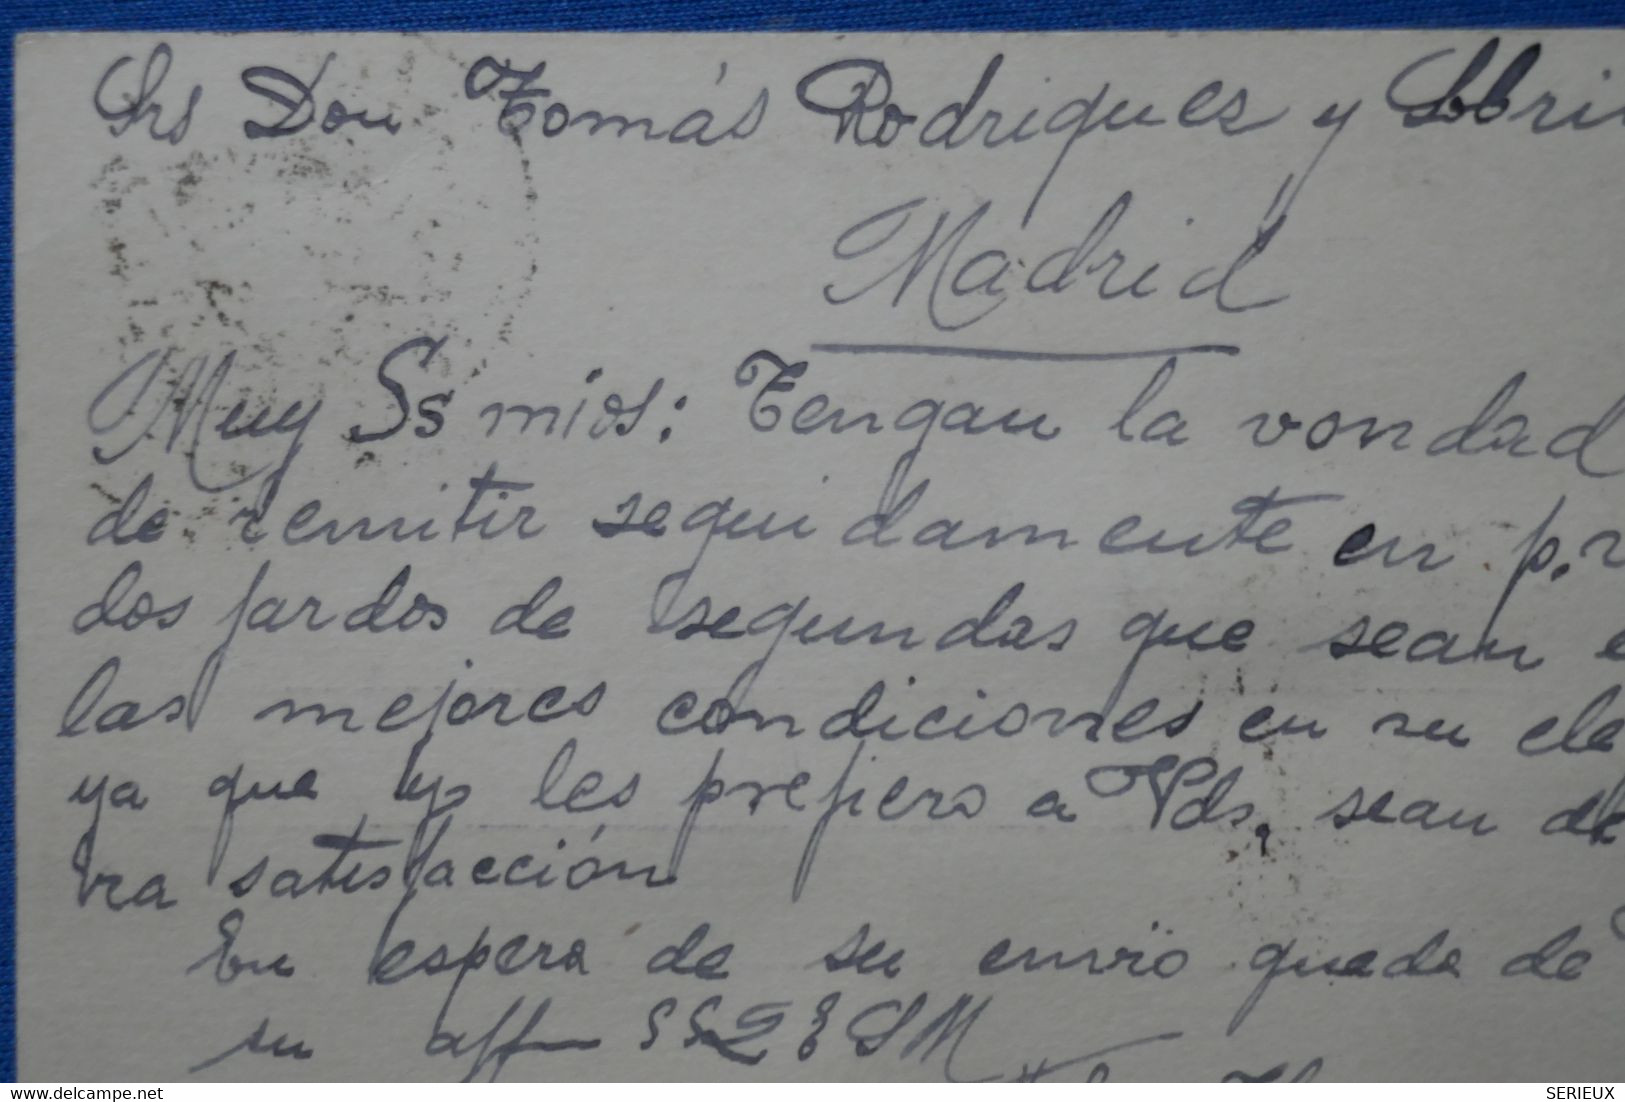 Srs Don Tomás Rodriguez y Sbri
Madrid
Muy Ss mios: Tengan la vondad
de remitir seguidamente en p.
dos fardos de segundas que sean
las mejores condiciones en su ele
ya que yo les prefiero a Vds, sean de
ra satisfacción
En espera de su envio queda de
su aff SS Q E S M
SERIEUX